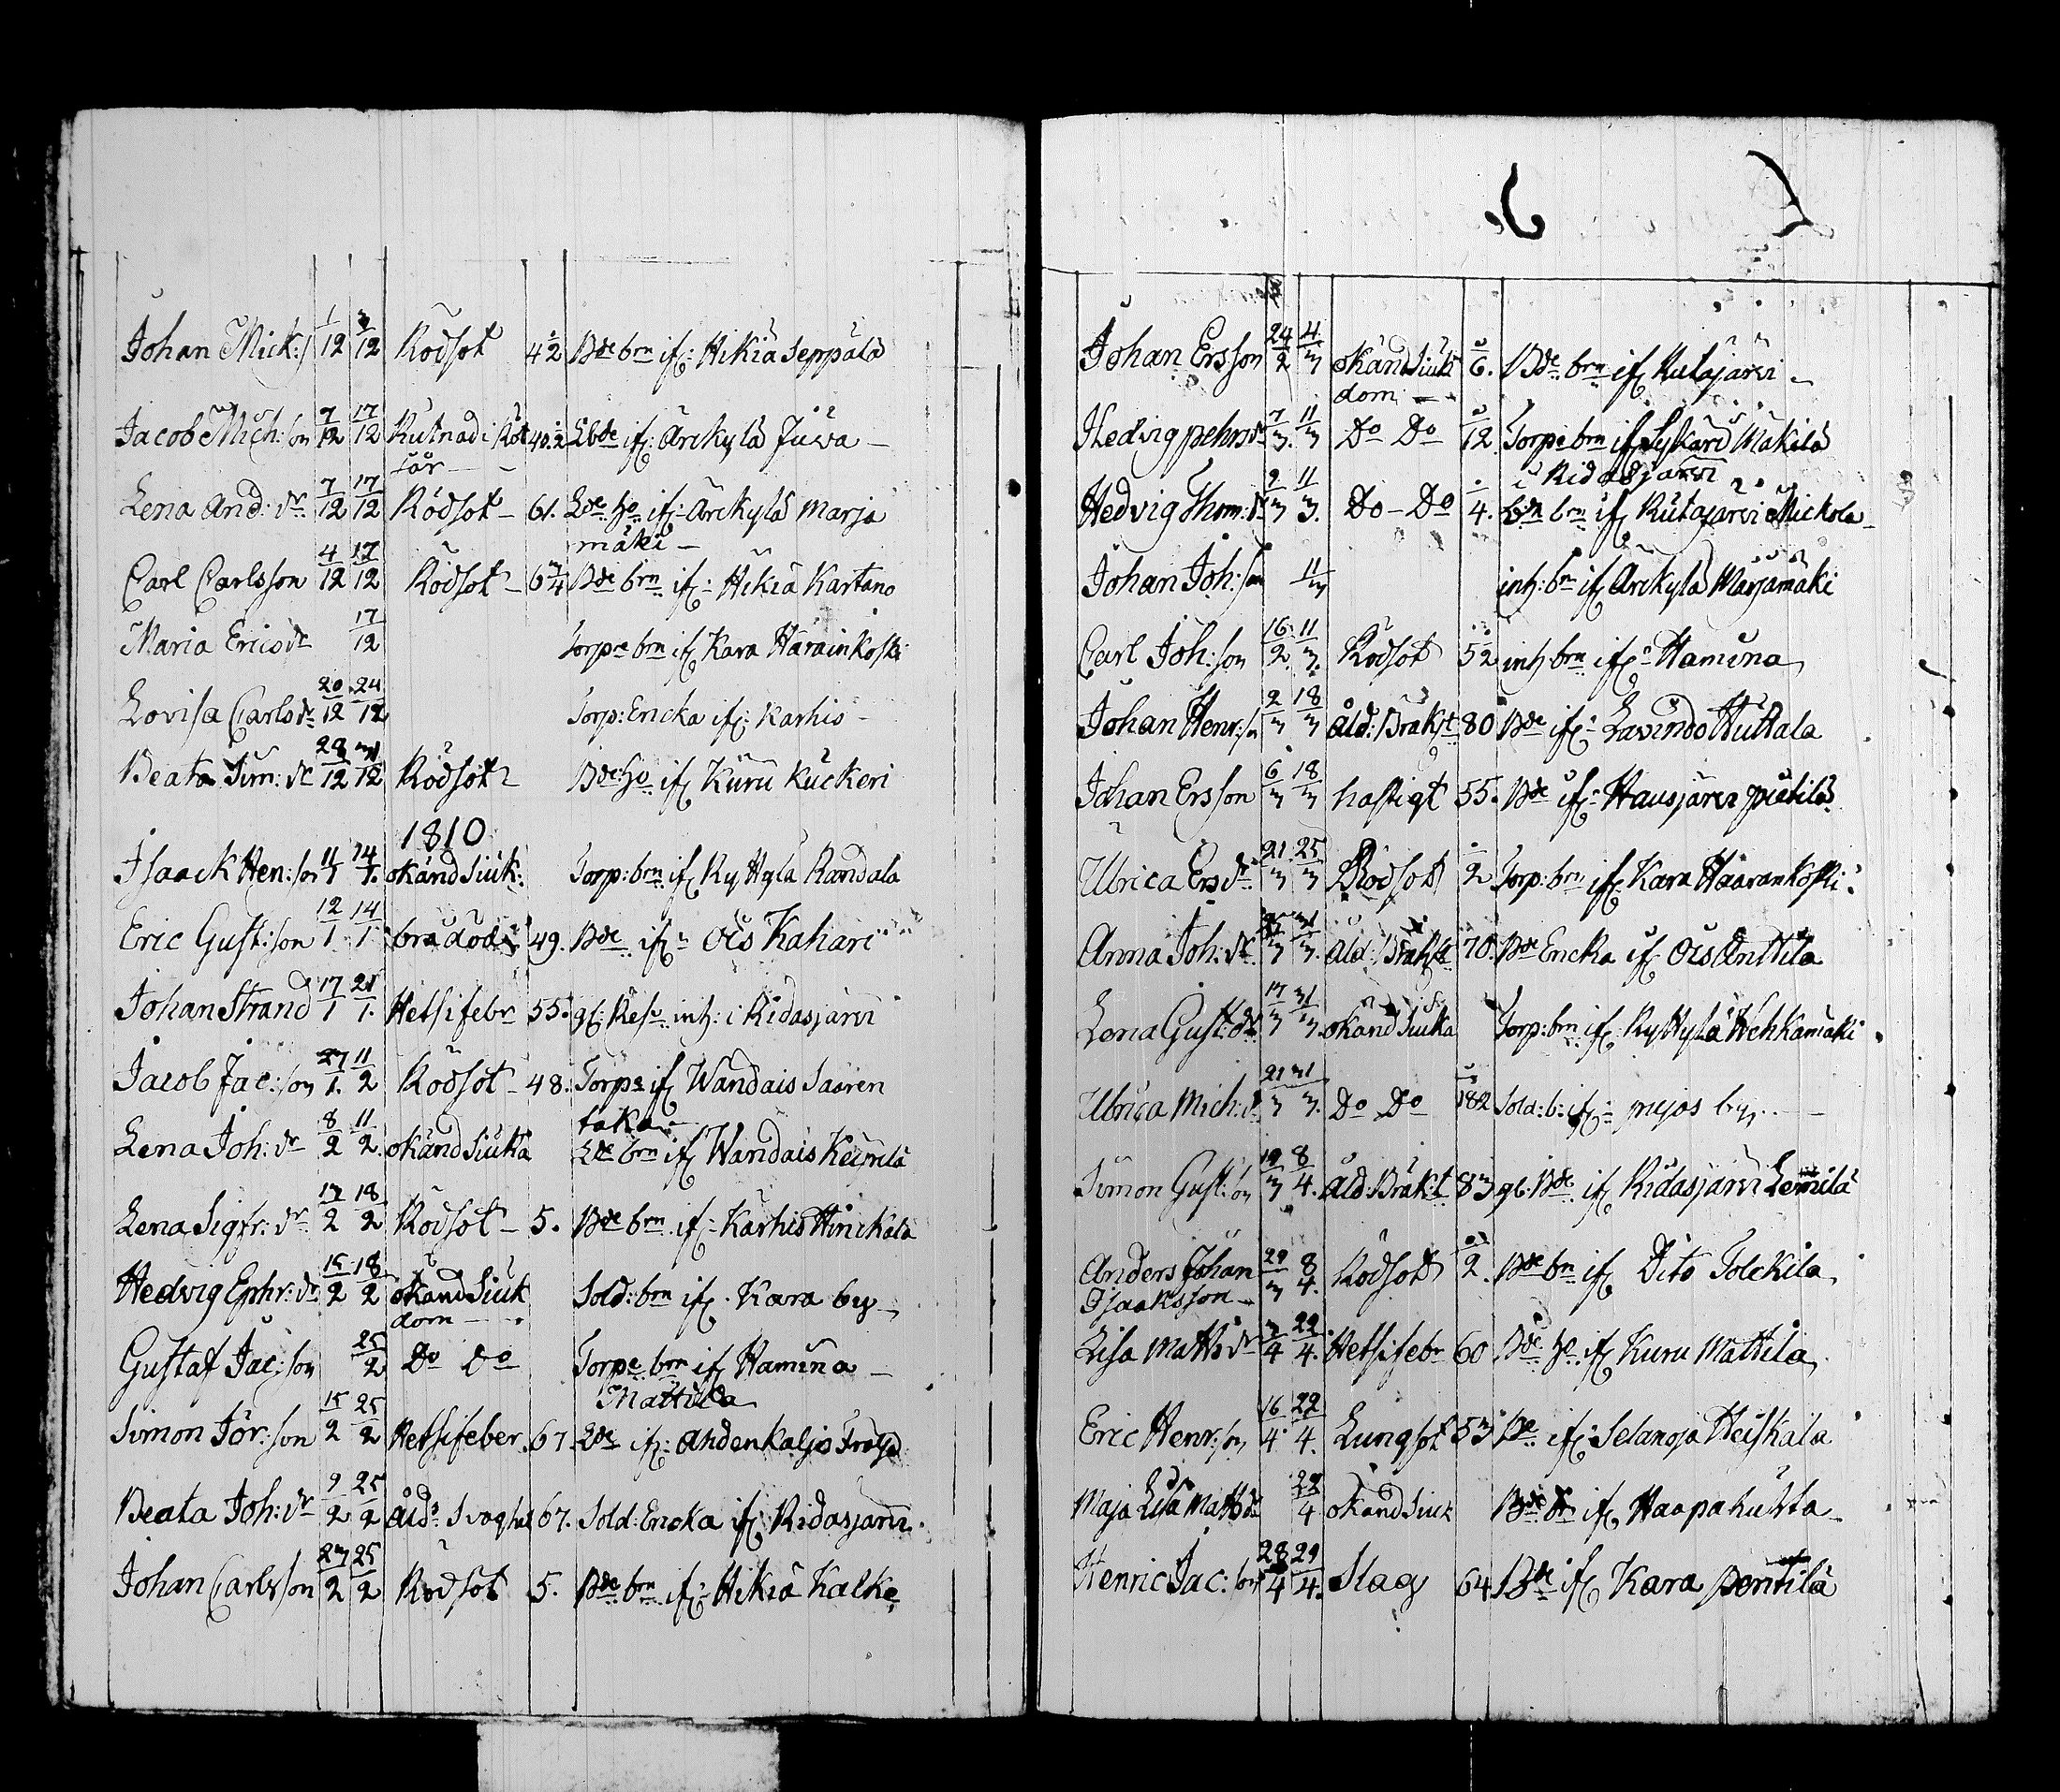 Johan Mick: 1/12 3/12 Rödsot 4 1/2 Bde brn if: Hikiä Seppälä
Jacob Mich:son 7/12 17/12 Rutnad i Röt 40.2 Lbde if: Arckylä Juva
sår
Lena And: dr 7/12 17/12 Rödsot 61. Lde Ho if: Arckylä Marja
mäki
Carl Carlsson 4/12 17/12 Rödsot 6 3/4 Bde brn if: Hikiä Kartano
Maria Ericsdr 17/12 Torpe brn if Kara Härainkoski
Lovisa Carlsdr 20/12 24/12 Torp: Encka if: Karhis
Beata Sim: dr 28/12 31/12 Rödsot Bde Ho if Kuru Kuckeri
1810
Isaack Hen:son 11/1 14/1. okänd Siuk: Torp: brn if Ryttylä Randala
Eric Gust:son 12/1 14/1 brådöd 49. Bde if: Ois Kahari
Johan Strand 17/1 21/1. Hetsifebr 55. gl: Res: inh: i Ridasjärvi
Jacob Jac:son 27/1. 11/2 Rödsot 48. Torpe if Wandais Saaren
taka
Lena Joh: dr 8/2 11/2. okänd Siuka Lde brn if Wandais Keipilä
Lena Sigfr: dr 13/2 18/2 Rödsot 5. Bde brn if: Karhis Hinckala
Hedvig Ephr: dr 15/2 18/2 okänd Siuk Sold: brn if. Kara by
dom
Gustaf Jac:son 25/2 Do Do Torpe brn if Hamina
Mattila
Simon Jör:son 15/2 25/2 Hetsifeber 67. Lde if: Ahdenkaljo
Beata Joh: dr 9/2 25/2 åld: Svaghet 67. Sold: Encka if Ridasjärvi
Johan Carlsson 23/2 25/2 Rödsot 5. Bde brn if: Hikiä Kalke
Johan Ersson 24/2 4/3 okänd Siuk 6. Bde brn if Rutajärvi
dom
Hedvig pehrsdr 7/3. 11/3 Do Do 12. Torpe brn if Lyskärd Mäkilä
i Ridasjärvi
Hedvig Thom: dr 9/3 11/3. Do Do 4. brn if Rutajärvi Mickola
Johan Joh:son 11/3 inh: bn if Arckylä Marjamäki
Carl Joh:son 16/2 11/3. Rödsot 5 1/2 inh brn if: Hamina
Johan Henr:son 2/3 18/3 åld: Bräkt 80 Bde if: Lavindo Huttala
Johan Ersson 6/3 18/3 hastigt 55. Bde if: Hausjärvi pietilä
Ulrica Ersdr 21/3 25/3 Rödsot 2 Torp: brn if: Kara Häärankoski
Anna Joh: dr 31/3. åld: Bräkt 70. Bde Encka if Ois Anttila
Lena Gust: dr 31/3. okänd Siuka Torp: brn if: Ryttylä Wehkamäki
Ulrica Mich: dr 21/3 31/3. Do Do Sold: b: if: by
Simon Gust:son 19/3 8/4. åld: Bräk:t 83 gl: Bde if Ridasjärvi Lemilä
Anders Johan 29/3 8/4. Rödsot 2 Bde bn if Dito Tolckila
Isaaksson
Lisa Mattsdr 3/4 22/4. Hetsifebr 60 Bde Ho if Kuru Mattila
Eric Henr:son 16/4 22/4. Lungsot 53 Bde if: Selanoja Heiskala
Maja Lisa Mattsdr 22/4 okänd Siuk Bde brn if Haapahuhta
Henric Jac:son 28/4 29/4. Slag 64 Bde if Kara pentilä